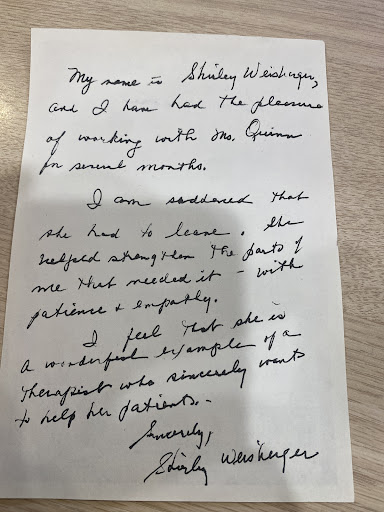 My name is Shirley Weisberger,
and I have had the pleasure
of working with Ms. Quinn
for several months.
I am saddened that
she had to leave. She
helped strengthen the parts of
me that needed it - with
patience & empathy.
I feel that she is
a wonderful example of a
therapist who sincerely wants
to help her patients.-
Sincerely,
Shirley Weisberger